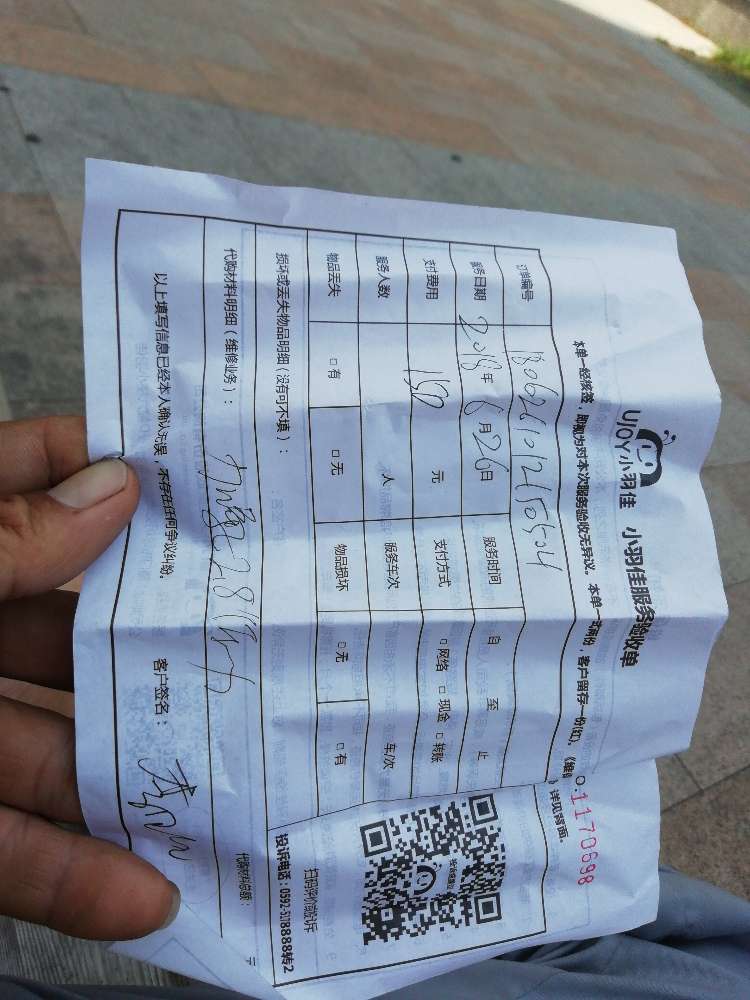 UJOY小羽佳 小羽佳服务验收单
本单一经核签，即视为对本次服务验收无异议。本单一式两份，客户留存一份(红)，
详见背面。
O:1170698
订单编号
服务日期 2018年 6月26日 服务时间 自 至 止
支付费用 150 元 支付方式 □网络 □现金 □转账
服务人数 人 服务车次 车/次
物品丢失 □有 □无 物品损坏 □无 □有
损坏或丢失物品明细（没有可不填）：
代购材料明细（维修业务）：
代购材料总额： 元
以上填写信息已经本人确认无误，不存在任何争议纠纷。 客户签名：
扫码评价或投诉
投诉电话：0592-5178888转2